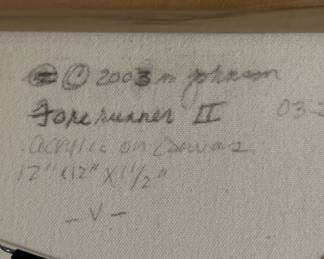 © 2003 m johnson
Forerunner II 03-2
acrylic on canvas
12" x 12" x 1 1/2"
- V -